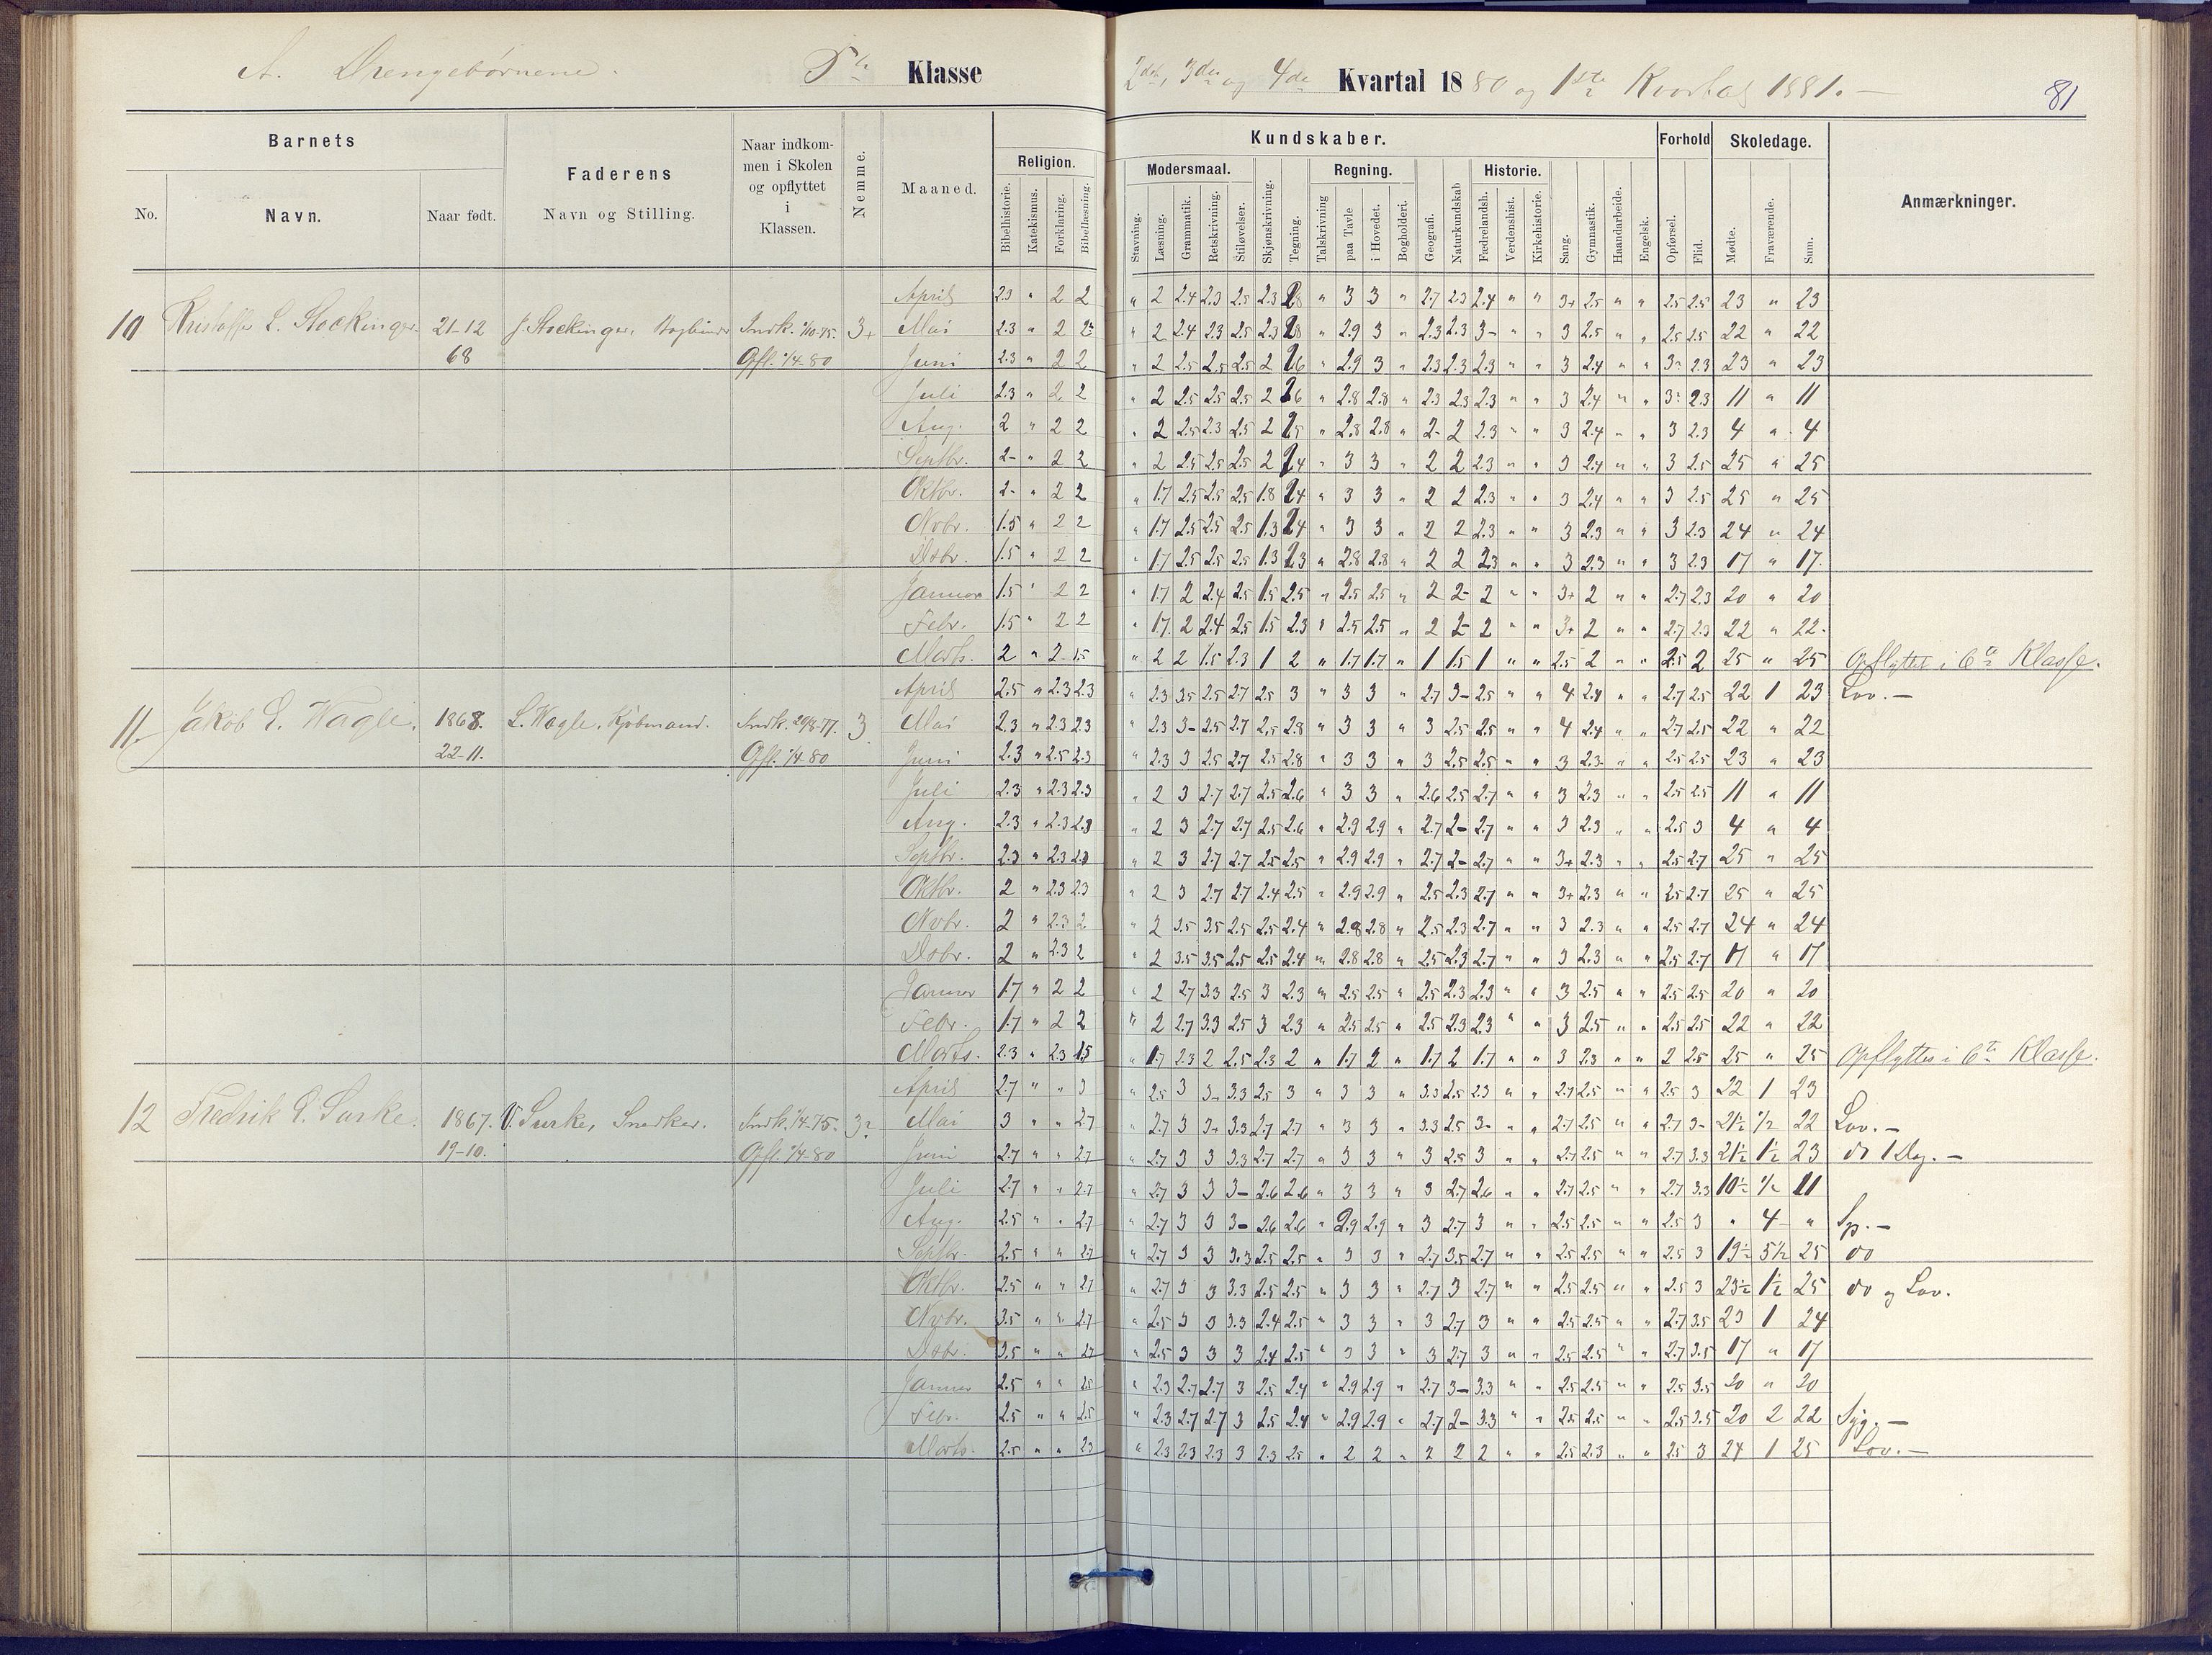 A. Drengebørnene. 5te Klasse
2det, 3die og 4de Kvartal 1880 og 1ste Kvartal 1881. —
81
Barnets
Faderens
Navn og Stilling.
Naar indkom-
men i Skolen
og opflyttet
i
Klassen.
Nemme.
Maaned.
Religion.
Kundskaber.
Modersmaal.
Regning.
Historie.
Forhold
Skoledage.
Anmærkninger.
No.
Navn.
Naar født.
Bibelhistorie.
Katekismus.
Forklaring.
Bibellæsning.
Stavning.
Læsning.
Grammatik.
Retskrivning.
Stiløvelser.
Skjønskrivning.
Tegning.
Talskrivning
paa Tavle
i Hovedet.
Bogholderi.
Geografi.
Naturkundskab
Fædrelandsh.
Verdenshist.
Kirkehistorie.
Sang.
Gymnastik.
Haandarbeide.
Engelsk.
Opførsel.
Flid.
Mødte.
Fraværende.
Sum.
10 Kristoffer L. Stockinger. 21-12 J. Stockinger, Bogbinder Indk. 1/10-75. 3+
68 Opfl. 1/4-80
April 2.3 " 2 2 " 2 2.4 2.3 2.5 2.3 " 3 3 " 2.7 2.3 2.4 " " 3+ 2.5 " " 2.5 2.5 23 " 23
Mai 2.3 " 2 " 2 2.4 2.3 2.5 2.3 " 2.9 3 " 2.3 2.3 3- " " 3 2.5 " " 2.5 2.5 22 " 22
Juni 2.3 " 2 2 " 2 2.5 2.5 2.5 2 " 2.9 3 " 2.3 2.3 2.3 " " 3 2.4 " " 2.3 23 " 23
Juli 2.3 " 2 2 " 2 2.5 2.5 2.5 2 " 2.8 2.8 " 2.3 2.3 2.3 " " 3 2.4 " " 2.3 11 " 11
Aug. 2 " 2 2 " 2 2.5 2.3 2.5 2 " 2.8 2.8 " 2- 2 2.3 " " 3 2.4 " " 3 2.3 4 " 4
Septbr. 2- " 2 2 " 2 2.5 2.5 2.5 2 " 3 3 " 2 2 2.3 " " 3 2.4 " " 3 2.5 25 " 25
Oktbr. 2- " 2 2 " 1.7 2.5 2.5 2.5 1.8 2.4 " 3 3 " 2 2 2.3 " " 3 2.4 " " 3 2.5 25 " 25
Novbr. 1.5 " 2 2 " 1.7 2.5 2.5 2.5 1.3 2.4 " 3 3 " 2 2 2.3 " " 3 2.3 " " 3 2.3 24 " 24
Dcbr. 1.5 " 2 2 " 1.7 2.5 2.5 2.5 1.3 2.3 " 2.8 2.8 " 2 2 2.3 " " 3 2.3 " " 3 2.3 17 " 17.
Januar 1.5 " 2 2 " 1.7 2 2.4 2.5 1.5 2.5 " 2.5 2.5 " 2 2- 2 " " 3+ 2 " " 2.7 2.3 20 " 20
Febr. 1.5 " 2 2 " 1.7. 2 2.4 2.5 1.5 2.3 " 2.5 2.5 " 2 2- 2 " " 3+ 2 " " 2.7 2.3 22 " 22.
Marts. 2 " 2 1.5 " 2 2 1.5 2.3 1 2 " 1.7 1.7 " 1 1.5 1 " " 2.5 2 " " 2.5 2 25 " 25 Opflyttet i 6te Klasse.
11. Jakob E. Wagle. 1868. L. Wagle, Kjøbmand. Indk. 29/8-77. 3
22-11. Opfl. 1/4-80
April 2.5 " 2.3 2.3 " 2.3 3.5 2.5 2.7 2.5 3 " 3 3 " 2.7 3- 2.5 " " 4 2.4 " " 2.7 2.5 22 1 23 Lov. —
Mai 2.3 " 2.3 2.3 " 2.3 3- 2.5 2.7 2.5 2.8 " 3 3 " 3 2.5 2.5 " " 4 2.4 " " 2.7 2.5 22 " 22
Juni 2.3 " 2.5 2.3 " 2.3 3 2.5 2.7 2.5 2.8 " 3 3 " 3 2.5 2.5 " " 3 2.3 " " 2.5 2.5 23 " 23
Juli 2.3 " 2.3 2.3 " 2 3 2.7 2.7 2.5 2.6 " 3 3 " 2.6 2.5 2.7 " " 3 2.3 " " 2.5 2.5 11 " 11
Aug. 2.3 " 2.3 2.3 " 2 3 2.7 2.7 2.5 2.6 " 2.9 2.9 " 2.7 2- 2.7 " " 3 2.3 " " 2.5 3 4 " 4
Septbr. 2.3 " 2.3 2.3 " 2 3 2.7 2.7 2.5 2.5 " 2.9 2.9 " 2.7 2- 2.7 " " 3+ 2.3 " " 2.5 2.7 25 " 25
Oktbr. 2 " 2.3 2.3 " 2 3 2.7 2.7 2.4 2.5 " 2.9 2.9 " 2.5 2.3 2.7 " " 3+ 2.3 " " 2.5 2.7 25 " 25
Novbr. 2 " 2.3 2 " 2 3.5 3.5 2.5 2.5 2.4 " 2.8 2.8 " 2.5 2.3 2.7 " " 3 2.3 " " 2.5 2.7 24 " 24
Dcbr. 2 " 2.3 2 " 2 3.5 3.5 2.5 2.5 2.4 " 2.8 2.8 " 2.5 2.3 2.7 " " 3 2.3 " " 2.5 2.7 17 " 17
Januar 1.7 " 2 2 " 2 2.7 3.3 2.5 3 2.3 " 2.5 2.5 " 2.5 2.3 2.3 " " 3 2.5 " " 2.5 2.5 20 " 20
Febr. 1.7 " 2 2 " 2 2.7 3.3 2.5 3 2.3 " 2.5 2.5 " 2.5 2.3 2.3 " " 3 2.5 " " 2.5 2.5 22 " 22
Marts. 2.3 " 2.3 1.5 " 1.7 2.3 2 2.5 2.3 2 " 1.7 2 " 1.7 2 1.7 " " 3 2.3 " " 2 2.5 25 " 25 Opflyttes i 6te Klasse.
12 Fredrik E. Surke. 1867. V. Surke, Snedker. Indk. 1/4-75.
19-10. Opfl. 1/4-80
April 2.7 " " 3 " 2.5 3 3+ 3.3 2.5 3 " 3 3 " 3.3 2.5 2.3 " " 2.7 2.5 " " 2.5 3 22 1 23
Mai 3 " " 2.7 " 2.7 3 3+ 3.3 2.7 2.7 " 3 3 " 3.3 2.5 3- " " 2.7 2.5 " " 2.7 3- 21½ ½ 22 Lov. —
Juni 2.7 " " 2.7 " 2.7 3 3 3.3 2.7 2.7 " 3 3 " 3 2.5 3 " " 2.7 2.5 " " 2.7 3.3 21½ 1½ 23 do 1 Dag. —
Juli 2.7 " " 2.7 " 2.7 3 3 3- 2.6 2.6 " 3 3 " 3 2.7 2.6 " " 2.7 2.5 " " 2.7 3.3 10½ ½ 11
Aug. 2.5 " " 2.7 " 2.7 3 3 3- 2.6 2.6 " 2.9 2.9 " 3 2.7 3 " " 2.5 2.5 " " 2.5 3 " 4 " Sp. —
Septbr. 2.5 " " 2.7 " 2.7 3 3 3.3 2.5 2.5 " 3 3 " 2.7 3.5 2.7 " " 2.5 2.5 " " 2.5 3 19½ 5½ 25 do
Oktbr. 2.5 " " 2.7 " 2.7 3 3 3.3 2.5 2.5 " 3 3 " 2.7 3 2.7 " " 2.5 2.5 " " 2.5 3 23½ 1½ 25 do og Lov.
Novbr. 3.5 " " 2.7 " 2.5 3 3 3.3 2.4 2.5 " 3 3 " 3 2.7 3 " " 2.5 2.5 " " 2.7 3.5 23 1 24
Dcbr. 3.5 " " 2.7 " 2.5 3 3 3 2.4 2.5 " 3 3 " 3 2.7 3 " " 2.5 2.5 " " 2.7 3.5 17 " 17
Januar 2.5 " " 2.5 " 2.3 2.7 2.7 3 2.5 2.4 " 2.9 2.9 " 2.7 3- 3.3 " " 2.5 2.5 " " 2.5 3.5 20 " 20
Febr. 2.5 " " 2.5 " 2.3 2.7 2.7 3 2.5 2.4 " 2.9 2.9 " 2.7 2- 3.3 " " 2.5 2.5 " " 2.5 3.5 20 2 22 Syg. —
Marts. 2.5 " " 2.3 " 2.3 2.3 2.3 3 2.3 2.5 " 2 2 " 2 2 2 " " 2.5 2.3 " " 2.5 3 24 1 25 Lov. —